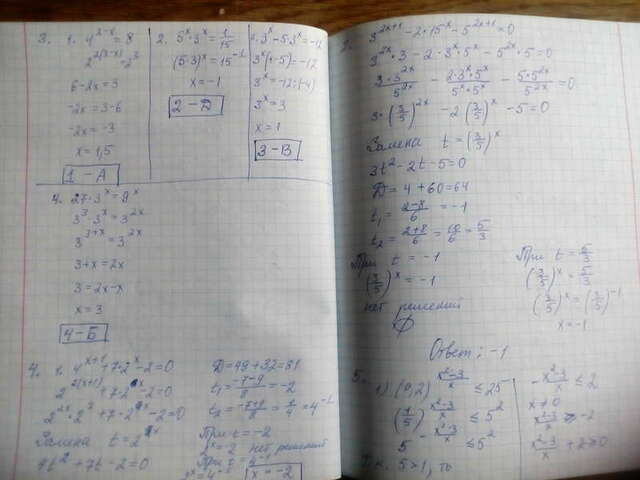 3. 1. 4^{3-x} = 8
2^{2(3-x)} = 2^3
6-2x = 3
-2x = 3-6
-2x = -3
x = 1,5
1 - А
2. 5^x · 3^x = 1/15
(5·3)^x = 15^{-1}
x = -1
2 - Д
3^x - 5·3^x = -12
3^x = -12:(-4)
3^x = 3
x = 1
3 - В
4. 27·3^x = 9^x
3^3·3^x = 3^{2x}
3^{3+x} = 3^{2x}
3+x = 2x
3 = 2x-x
x = 3
4 - Б
4. 1. 4^{x+1} + 7·2^x - 2 = 0
2^{2(x+1)} + 7·2^x - 2 = 0
2^{2x}·2^2 + 7·2^x - 2 = 0
Замена t = 2^x
4t^2 + 7t - 2 = 0
Д = 49 + 32 = 81
t_1 = (-7-9)/8 = -2
t_2 = (-7+9)/8 = 1/4 = 4^{-1}
При t = -2
2^x = -2 нет решений
При t = 4^{-1}
2^x = 4^{-1}
x = -2
3^{2x+1} - 2·15^x - 5^{2x+1} = 0
3^{2x}·3 - 2·3^x·5^x - 5^{2x}·5 = 0
3·3^{2x}/5^{2x} - 2·3^x·5^x/5^x·5^x - 5·5^{2x}/5^{2x} = 0
3·(3/5)^{2x} - 2(3/5)^x - 5 = 0
Замена t = (3/5)^x
3t^2 - 2t - 5 = 0
Д = 4 + 60 = 64
t_1 = (2-8)/6 = -1
t_2 = (2+8)/6 = 10/6 = 5/3
При t = -1
(3/5)^x = -1
нет решений
∅
При t = 5/3
(3/5)^x = 5/3
(3/5)^x = (3/5)^{-1}
x = -1
Ответ: -1
5. 1) (0,2)^{(x^2-3)/x} ≤ 25
(1/5)^{(x^2-3)/x} ≤ 5^2
5^{-(x^2-3)/x} ≤ 5^2
Т.к. 5 > 1, то
-(x^2-3)/x ≤ 2
x ≠ 0
(x^2-3)/x ≥ -2
(x^2-3)/x + 2 ≥ 0